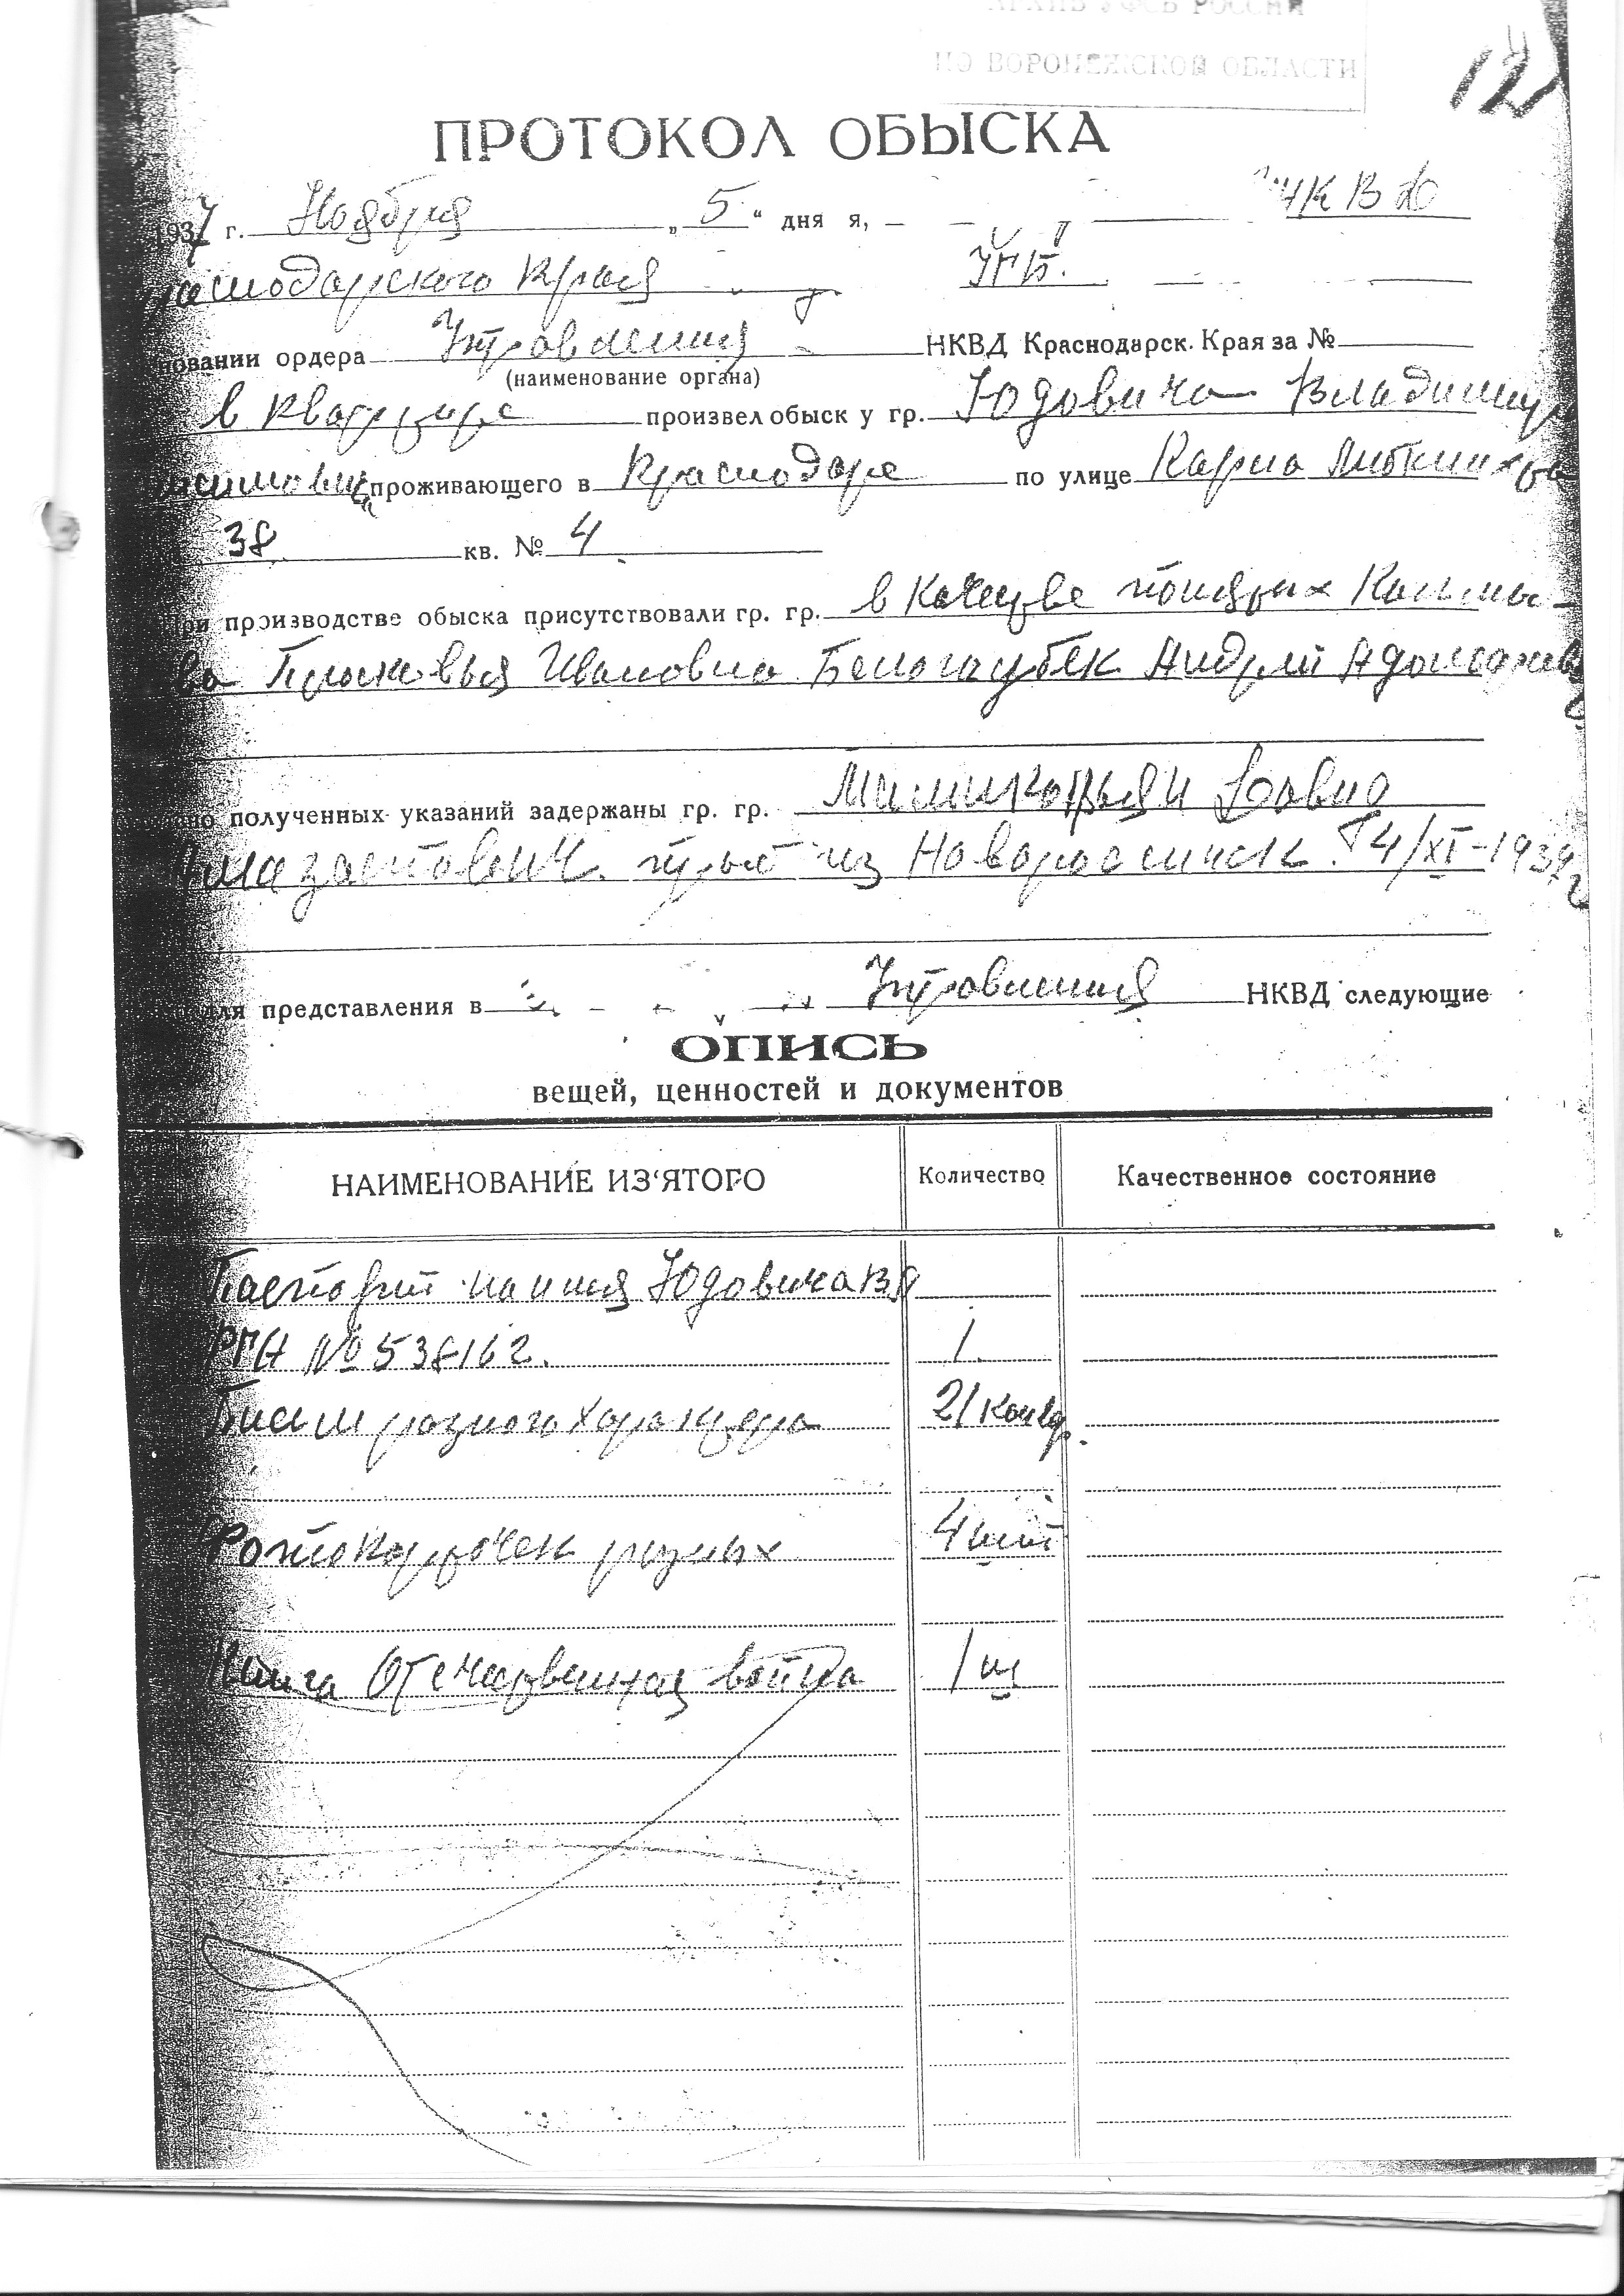 АРХИВ УФСБ РОССИИ
ПО ВОРОНЕЖСКОЙ ОБЛАСТИ
12
ПРОТОКОЛ ОБЫСКА
1937 г. Ноября „ 5 “ дня я, НКВД
раснодарского Края УГБ.
новании ордера Управления НКВД Краснодарск. Края за №
(наименование органа)
в квартире произвел обыск у гр. Юдовича Владимир
проживающего в Краснодаре по улице Карла Либкнехта
38 кв. № 4
ри производстве обыска присутствовали гр. гр. в качестве понятых Калмы-
ва Прасковья Ивановна Белогубек Андрей
но полученных указаний задержаны гр. гр. Давид
приб из Новороссийск. 4/XI-1937 г
для представления в Управления НКВД следующие
ОПИСЬ
вещей, ценностей и документов
НАИМЕНОВАНИЕ ИЗ‘ЯТОГО Количество Качественное состояние
Паспорт на имя Юдовича В Я
№ 538162. 1.
Писем разного характера 21 конвер.
Фотокарточек разных 4 шт
Книга Отечественная война 1 ш